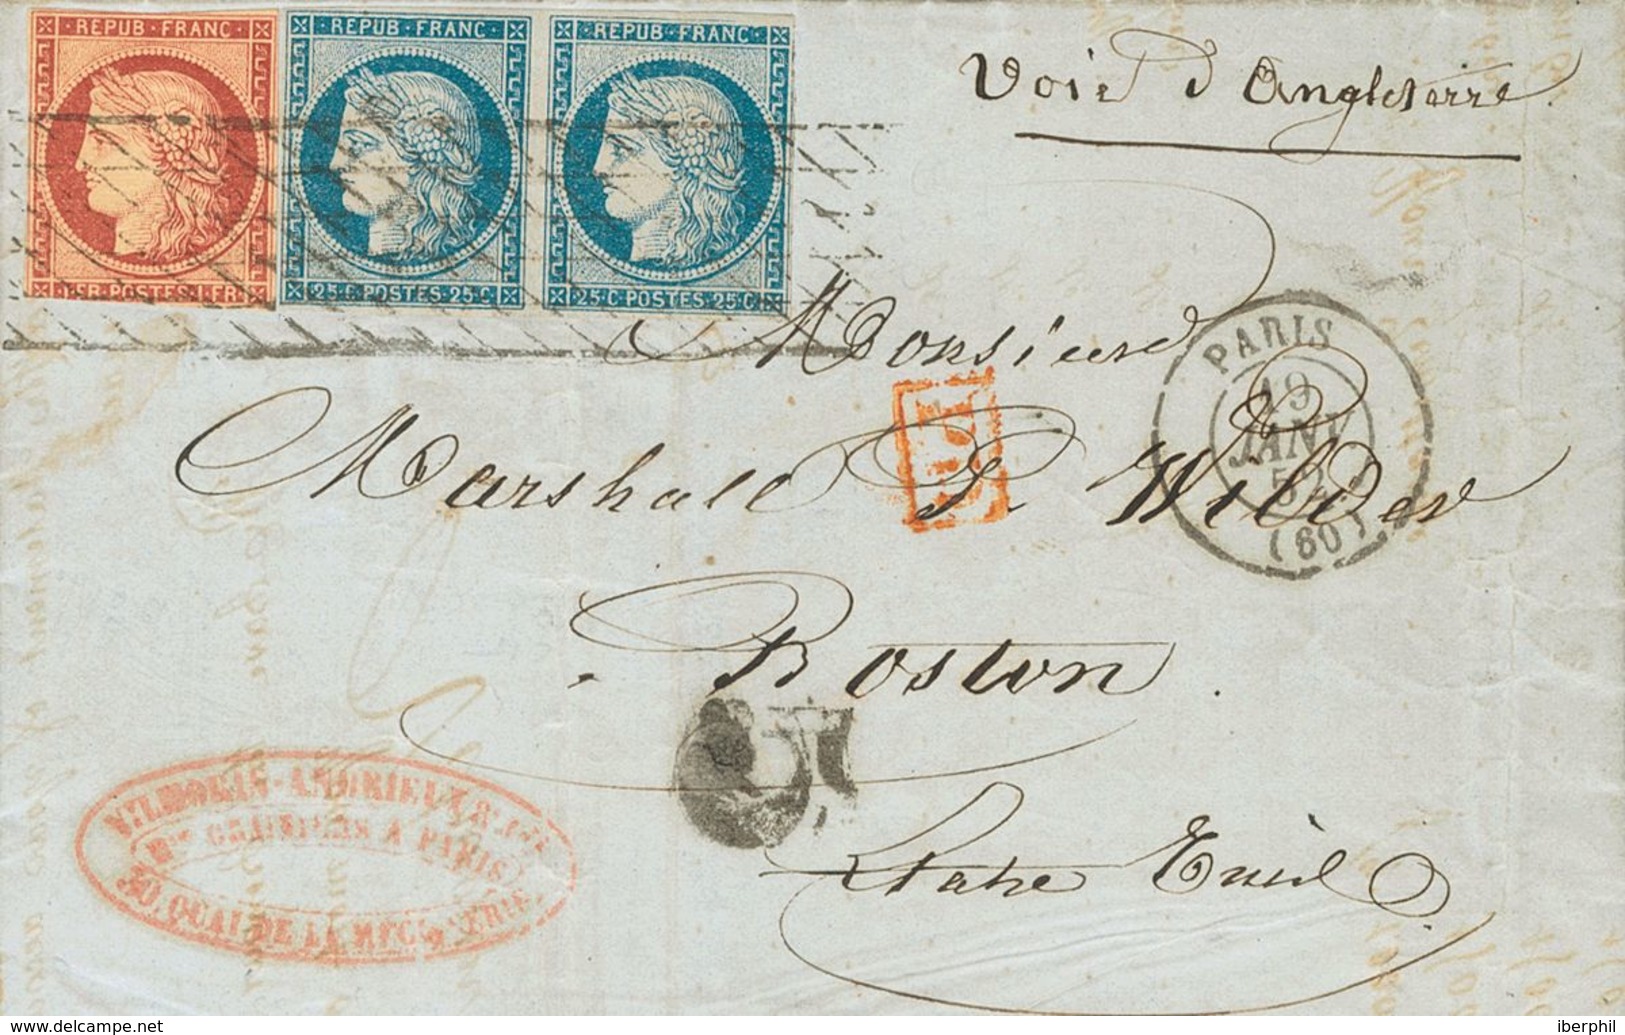 REPUB·FRANC
REPUB·FRANC
REPUB·FRANC
1FR·POSTES·1FR
25·C·POSTES·25·C
25·C·POSTES·25·C
Voie d'Angleterre
Monsieur
PARIS
19
JANV
52
(60)
Marshall P. Wilder
Boston
VILMORIN-ANDRIEUX &
GRAINIERS A PARIS
30, QUAI DE LA MEGISSERIE
www.delcampe.net
iberphil